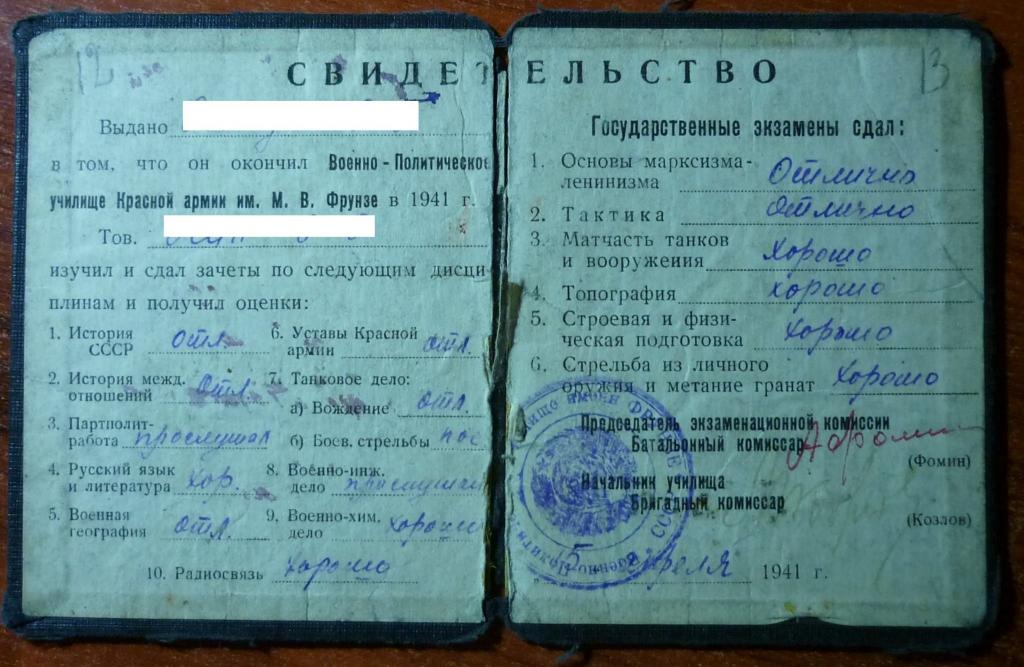 12
СВИДЕТЕЛЬСТВО
13
Выдано
в том, что он окончил Военно-Политическое
училище Красной армии им. М. В. Фрунзе в 1941 г.
Тов.
изучил и сдал зачеты по следующим дисци
плинам и получил оценки:
1. История СССР отл.
2. История межд. отношений отл.
3. Партполит-
работа прослушал
4. Русский язык
и литература хор.
5. Военная
география отл.
6. Уставы Красной
армии отл.
7. Танковое дело:
а) Вождение отл
б) Боев. стрельбы пос
8. Военно-инж.
дело прослушал
9. Военно-хим.
дело хорошо
10. Радиосвязь хорошо
Государственные экзамены сдал:
1. Основы марксизма-
ленинизма Отлично
2. Тактика отлично
3. Матчасть танков
и вооружения хорошо
4. Топография хорошо
5. Строевая и физи-
ческая подготовка хорошо
6. Стрельба из личного
оружия и метание гранат хорошо
Председатель экзаменационной комиссии
Батальонный комиссар
(Фомин)
Начальник училища
Бригадный комиссар
(Козлов)
5 апреля 1941 г.